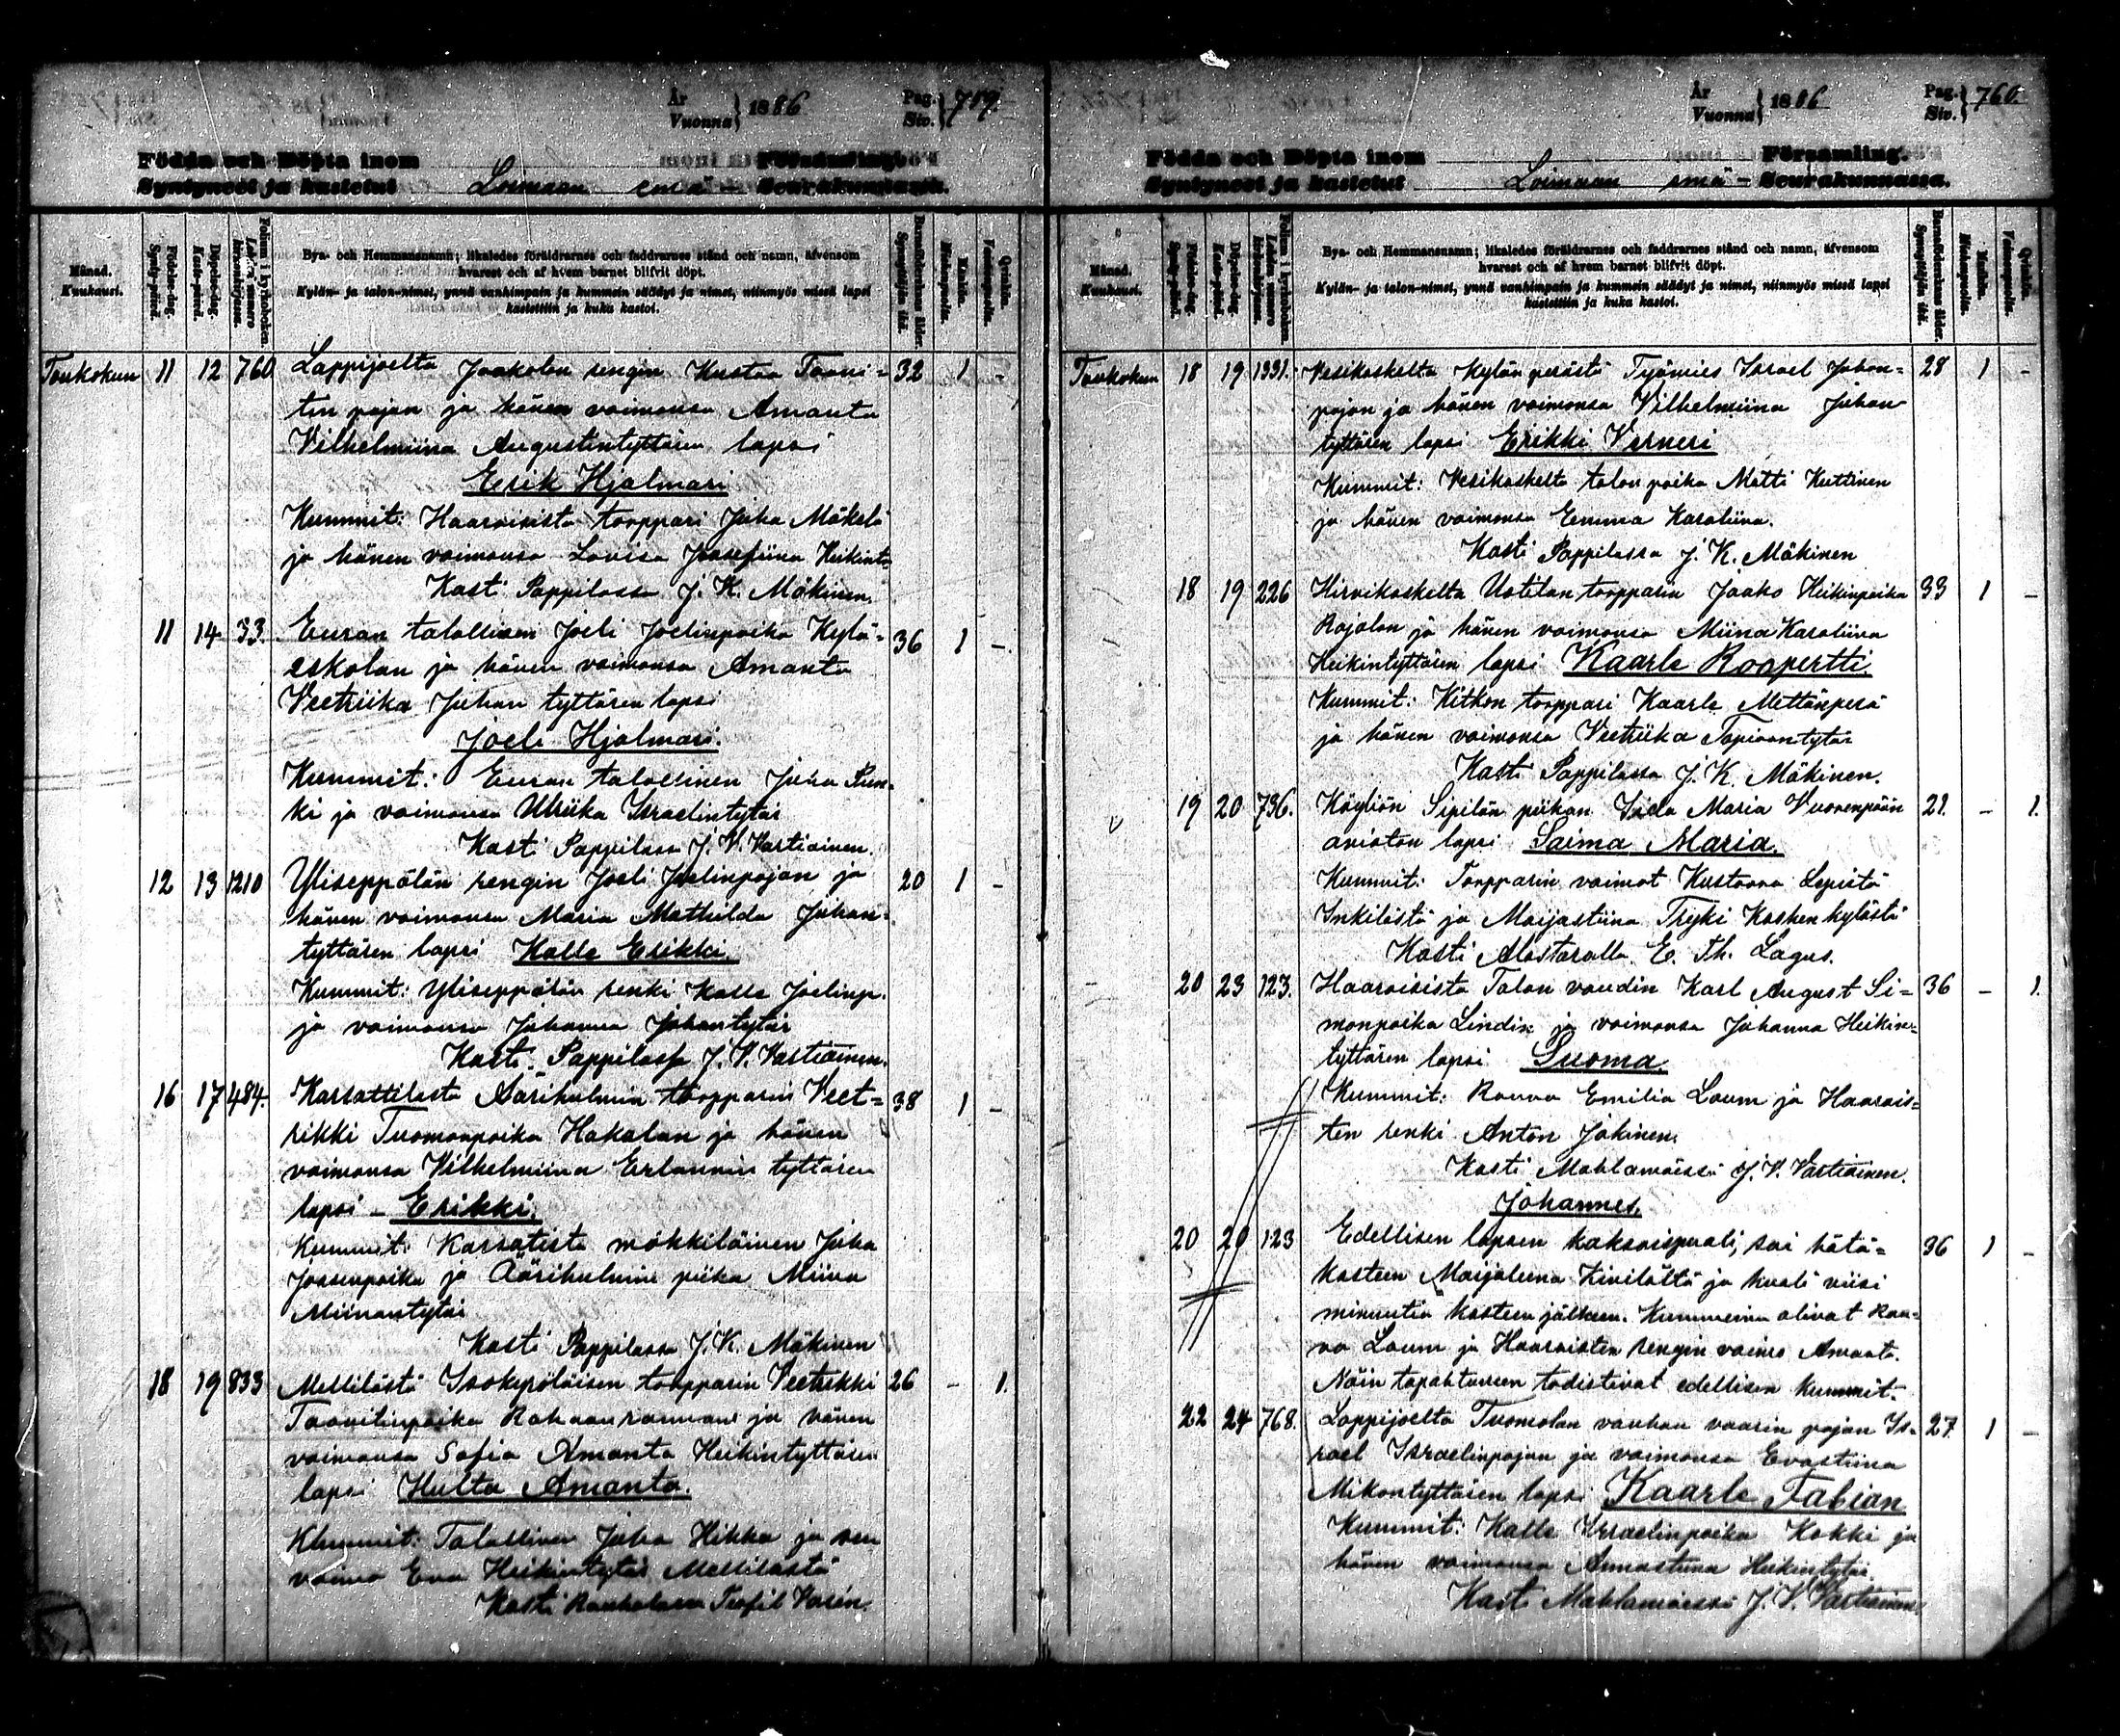 År
Vuonna } 1886
Pag.
Siv. } 759.
Födda och Döpta inom Församling.
Syntyneet ja kastetut Loimaan emä- Seurakunnassa.
Månad.
Kuukausi.
Födelse-dag.
Synty-päivä.
Döpelse-dag.
Kaste-päivä.
Folium i kyrkoboken.
Lehden numero kirkonkirjassa.
Bya- och Hemmansnamn; likaledes föräldrarnes och faddrarnes stånd och namn, äfvensom
hvarest och af hvem barnet blifvit döpt.
Kylän- ja talon-nimet, ynnä vanhimpain ja kummein säädyt ja nimet, niinmyös missä lapsi
kastettiin ja kuka kastoi.
Barnaföderskans ålder.
Synnyttäjän ikä.
Mankön.
Miehenpuolia.
Qvinkön.
Vaimonpuolia.
Toukokuun 11 12 760 Lappijoelta Jaakolan rengin Kustaa Taavi= 32 1 -
tin pojan ja hänen vaimonsa Amanta
Vilhelmiina Augustintyttären lapsi
Erik Hjalmari
Kummit: Haaroisista torppari Juha Mäkelä
ja hänen vaimonsa Lovisa Josefiina Heikint.
Kasti Pappilassa J. K. Mäkinen.
11 14 33. Euran talollisen Joeli Joelinpoika Kylä= 36 1 -
eskolan ja hänen vaimonsa Amanta
Veetriika Juhan tyttären lapsi
Joeli Hjalmari.
Kummit: Euran talollinen Juha Pun=
ki ja vaimonsa Ulriika Israelintytär
Kasti Pappilassa J. V. Vartiainen.
12 13 1210 Yliseppälän rengin Joeli Joelinpojan ja 20 1 -
hänen vaimonsa Maria Mathilda Juhan=
tyttären lapsi Kalle Erikki.
Kummit: Yliseppälän renki Kalle Joelinp.
ja vaimonsa Johanna Johantytär
Kasti Pappilassa J. V. Vartiainen.
16 17 484. Karsattilasta Äärikulmin torpparin Veet= 38 1 -
rikki Tuomaanpoika Hakalan ja hänen
vaimonsa Vilhelmiina Erlannin tyttären
lapsi - Erikki.
Kummit: Karsatista mökkiläinen Juha
Joosenpoika ja Äärikulmin piika Miina
Miinantytär
Kasti Pappilassa J. K. Mäkinen
18 19 833 Mellilästä Isokepoläisen torpparin Veetrikki 26 - 1.
Taavitinpoika Rahaanrannan ja hänen
vaimonsa Sofia Amanta Heikintyttären
lapsi Hulta Amanta.
Kummit: Talollinen Juha Hikka ja sen
vaimo Eva Heikintytär Mellilästä
Kasti Teofil Varén.
År
Vuonna } 1886
Pag.
Siv. } 760.
Födda och Döpta inom Församling.
Syntyneet ja kastetut Loimaan emä- Seurakunnassa.
Månad.
Kuukausi.
Födelse-dag.
Synty-päivä.
Döpelse-dag.
Kaste-päivä.
Folium i kyrkoboken.
Lehden numero kirkonkirjassa.
Bya- och Hemmansnamn; likaledes föräldrarnes och faddrarnes stånd och namn, äfvensom
hvarest och af hvem barnet blifvit döpt.
Kylän- ja talon-nimet, ynnä vanhimpain ja kummein säädyt ja nimet, niinmyös missä lapsi
kastettiin ja kuka kastoi.
Barnaföderskans ålder.
Synnyttäjän ikä.
Mankön.
Miehenpuolia.
Qvinkön.
Vaimonpuolia.
Toukokuun 18 19 1331. Vesikoskelta Kylän perästä Työmies Israel Johan= 28 1 -
pojan ja hänen vaimonsa Vilhelmiina Juhan
tyttären lapsi Erikki Verneri
Kummit: Vesikoskelta talon poika Matti Kuttinen
ja hänen vaimonsa Emma Karoliina.
Kasti Pappilassa J. K. Mäkinen
18 19 226 Hirvikoskelta Uotilan torpparin Jaako Heikinpoika 33 1 -
Rajalan ja hänen vaimonsa Miina Karoliina
Heikintyttären lapsi Kaarle Roopertti.
Kummit: Kitkon torppari Kaarle Mettänperä
ja hänen vaimonsa Veetriika Tapiaantytär
Kasti Pappilassa J. K. Mäkinen.
19 20 736. Köyliön Sipilän piikan Iida Maria Vuorenpään 21. - 1.
avioton lapsi Saima Maria.
Kummit: Torpparin vaimot Kustaava Lepistö
Inkilästä ja Maijastiina Tryki Kosken kylästä
Kasti Alastarolla E. Th. Lagus.
20 23 123. Haaroisista Talon voudin Karl August Si= 36 - 1.
monpoika Lindin ja vaimonsa Johanna Heikin=
tyttären lapsi Suoma.
Kummit: Rouva Emilia Loum ja Haarois=
ten renki Anton Jokinen.
Kasti Mahlamäessä J. V. Vartiainen.
Johannes.
20 20 123 Edellisen lapsen kaksoispuoli, sai hätä= 36 1 -
kasteen Maijaleena Kivilältä ja kuoli viisi
minuutia kasteen jälkeen. Kummeina olivat Rou=
va Loum ja Haaroisten rengin vaimo Amanta.
Näin tapahtuneen todistivat edellisen kummit.
22 24 768. Lappijoelta Tuomolan vanhan vaarin pojan Is= 27 1 -
rael Israelinpojan ja vaimonsa Evastiina
Mikontyttären lapsi Kaarle Fabian
Kummit: Kalle Israelinpoika Kokki ja
hänen vaimonsa Annastiina Heikintytär.
Kasti Mahlamäessä J. V. Vartiainen